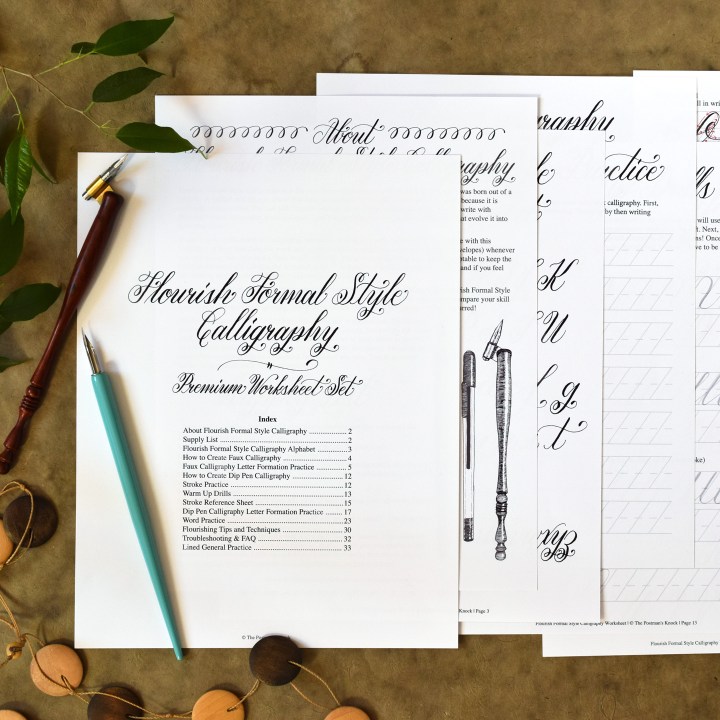 Flourish Formal Style
Calligraphy
Premium Worksheet Set
Index
About Flourish Formal Style Calligraphy .................. 2
Supply List ............................................................. 2
Flourish Formal Style Calligraphy Alphabet ............. 3
How to Create Faux Calligraphy .............................. 4
Faux Calligraphy Letter Formation Practice ............. 5
How to Create Dip Pen Calligraphy ......................... 12
Stroke Practice ........................................................ 12
Warm Up Drills ....................................................... 13
Stroke Reference Sheet ............................................ 15
Dip Pen Calligraphy Letter Formation Practice ......... 17
Word Practice .......................................................... 23
Flourishing Tips and Techniques .............................. 30
Troubleshooting & FAQ .......................................... 32
Lined General Practice ............................................ 33
About
Calligraphy
was born out of a
because it is
write with
at evolve it into
e with this
velopes) whenever
table to keep the
and if you feel
rish Formal Style
mpare your skill
rred!
Knock | Page 3
K
U
g
t
raphy
ctice
calligraphy. First,
by then writing
Flourish Formal Style Calligraphy Worksheet | © The Postman's Knock | Page 15
ll in writ
lls
will use
t. Next,
ns! Once
ve to be
oke)
Flourish Formal Style Calligraphy